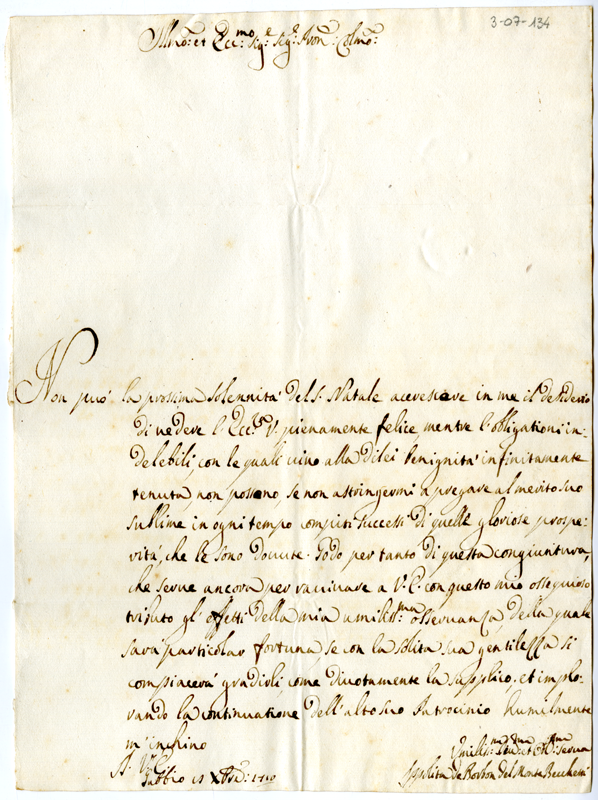 3-07-134
Illmo: et Eccmo: Sigre Sigr: Pron: Colmo:
Non può la prossima solennità del S. Natale accrescere in me il desiderio
di vedere l'Ecc: V: pienamente felice, mentre l'obligationi in-
delebili, con le quali vivo alla di lei benignità infinitamente
tenuta, non possono, se non astringermi a pregare al merito suo
sublime in ogni tempo compiti successi di quelle gloriose prospe-
rità, che le sono dovute. Godo per tanto di questa congiuntura,
che serve ancora per rassinare a V. E. con questo mio ossequioso
tributo gl'effetti della mia umilisma: osservanza, della quale
sarà particolar fortuna, se con la solita sua gentilezza si
compiacerà gradirli come divotamente la supplico; et implo-
rando la continuatione dell'alto suo Patrocinio humilmente
m'inchino
Di V. E.
Xbre:
Umilisma: Divma: et Obma: serva
Ippolita de Borbon del Monte Becchetti